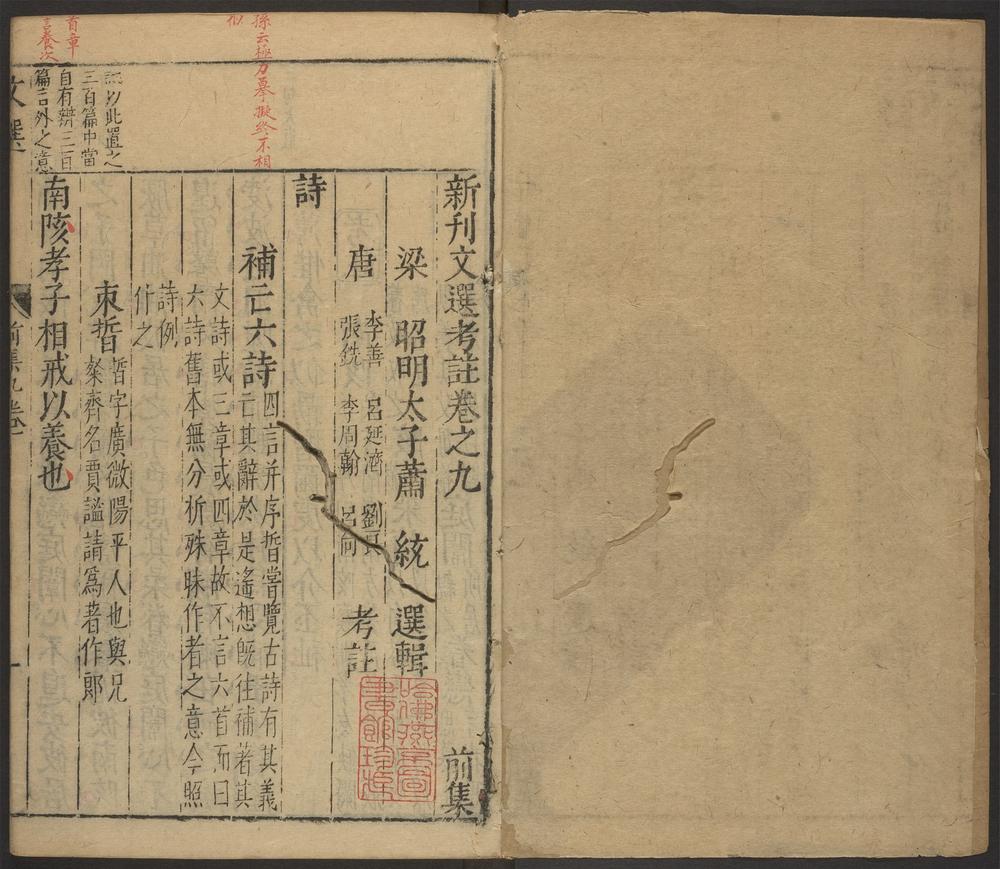 新刊文選考註卷之九
前集
梁 昭明太子蕭 統 選輯
唐 李善 呂延濟 劉良
張銑 李周翰 呂向 考註
詩
補亡六詩
四言并序晳嘗覽古詩有其義
亡其辭於是遙想既往補著其
文詩或三章或四章故不言六首而曰
六詩舊本無分析殊昧作者之意今照
詩例
什之
束晳
晳字廣微陽平人也與兄
璨齊名賈謐請為著作郎
南陔孝子相戒以養也
孫云極力摹擬終不相
似
首章
言養次
此置之
三百篇中當
自有辨三百
篇言外之意
文選
前集九卷
一
哈佛燕京圖
書館珍藏